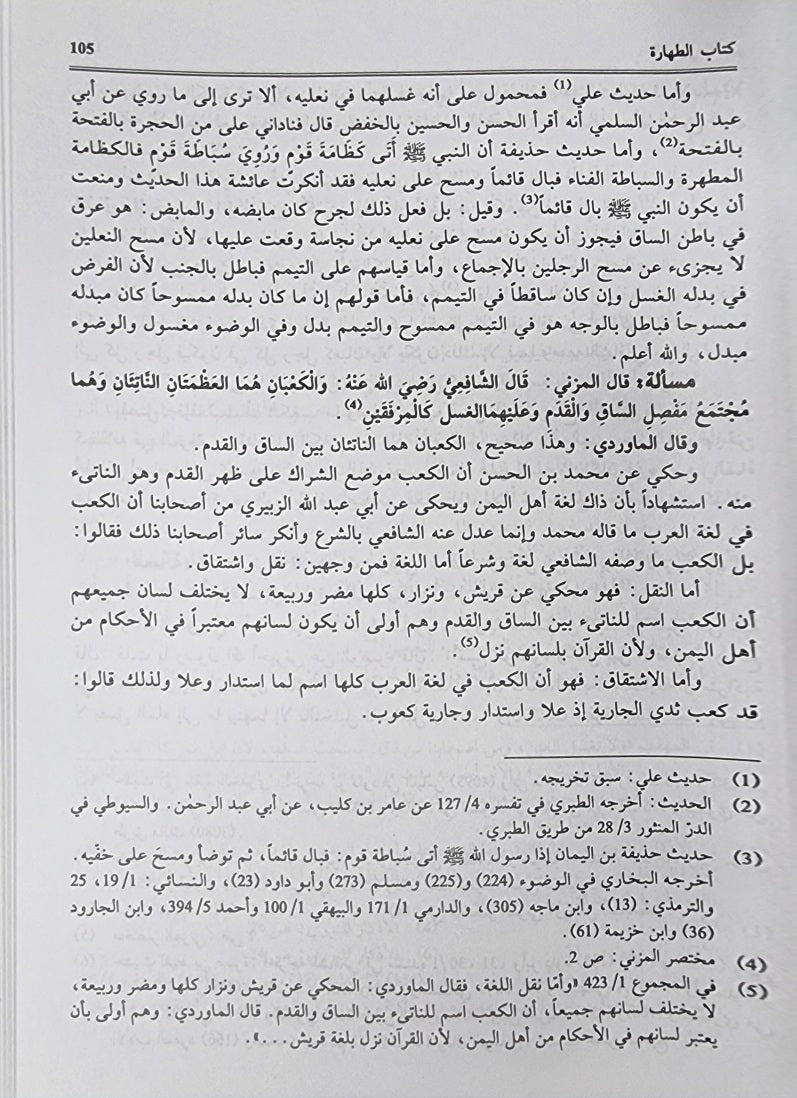 كتاب الطهارة 105
وأما حديث علي(1) فمحمول على أنه غسلهما في نعليه، ألا ترى إلى ما روي عن أبي
عبد الرحمٰن السلمي أنه أقرأ الحسن والحسين بالخفض قال فناداني على من الحجرة بالفتحة
بالفتحة(2)، وأما حديث حذيفة أن النبي ﷺ أَتَى كَظَامَةَ قَوْمٍ وَرُوِيَ سُبَاطَةَ قَوْمٍ فالكظامة
المطهرة والسباطة الفناء فبال قائماً ومسح على نعليه فقد أنكرت عائشة هذا الحديث ومنعت
أن يكون النبي ﷺ بال قائماً(3). وقيل: بل فعل ذلك لجرح كان مابضه، والمابض: هو عرق
في باطن الساق فيجوز أن يكون مسح على نعليه من نجاسة وقعت عليها، لأن مسح النعلين
لا يجزىء عن مسح الرجلين بالإجماع، وأما قياسهم على التيمم فباطل بالجنب لأن الفرض
في بدله الغسل وإن كان ساقطاً في التيمم، فأما قولهم إن ما كان بدله ممسوحاً كان مبدله
ممسوحاً فباطل بالوجه هو في التيمم ممسوح والتيمم بدل وفي الوضوء مغسول والوضوء
مبدل، والله أعلم.
مسألة: قال المزني: قَالَ الشَّافعِيُّ رَضِيَ الله عَنْهُ: وَالْكَعْبَانِ هُمَا العَظْمَتَانِ النَّاتِئَانِ وَهُما
مُجْتَمَعُ مَفْصِلِ السَّاقِ وَالْقَدَمِ وَعَلَيْهِمَاالغسل كَالمِرْفَقَيْنِ(4).
وقال الماوردي: وهذا صحيح، الكعبان هما الناتئان بين الساق والقدم.
وحكي عن محمد بن الحسن أن الكعب موضع الشراك على ظهر القدم وهو الناتىء
منه. استشهاداً بأن ذاك لغة أهل اليمن ويحكى عن أبي عبد الله الزبيري من أصحابنا أن الكعب
في لغة العرب ما قاله محمد وإنما عدل عنه الشافعي بالشرع وأنكر سائر أصحابنا ذلك فقالوا:
بل الكعب ما وصفه الشافعي لغة وشرعاً أما اللغة فمن وجهين: نقل واشتقاق.
أما النقل: فهو محكي عن قريش، ونزار، كلها مضر وربيعة، لا يختلف لسان جميعهم
أن الكعب اسم للناتىء بين الساق والقدم وهم أولى أن يكون لسانهم معتبراً في الأحكام من
أهل اليمن، ولأن القرآن بلسانهم نزل(5).
وأما الاشتقاق: فهو أن الكعب في لغة العرب كلها اسم لما استدار وعلا ولذلك قالوا:
قد كعب ثدي الجارية إذ علا واستدار وجارية كعوب.
(1) حديث علي: سبق تخريجه.
(2) الحديث: أخرجه الطبري في تفسره 4/ 127 عن عامر بن كليب، عن أبي عبد الرحمٰن. والسيوطي في
الدرّ المنثور 3/ 28 من طريق الطبري.
(3) حديث حذيفة بن اليمان إذا رسول الله ﷺ أتى سُباطة قوم: فبال قائماً، ثم توضأ ومسحَ على خفّيه.
أخرجه البخاري في الوضوء (224) و(225) ومسلم (273) وأبو داود (23)، والنسائي: 1/ 19، 25
والترمذي: (13)، وابن ماجه (305)، والدارمي 1/ 171 والبيهقي 1/ 100 وأحمد 5/ 394، وابن الجارود
(36) وابن خزيمة (61).
(4) مختصر المزني: ص 2.
(5) في المجموع 1/ 423 «وأمّا نقل اللغة، فقال الماوردي: المحكي عن قريش ونزار كلها ومضر وربيعة،
لا يختلف لسانهم جميعاً، أن الكعب اسم للناتىء بين الساق والقدم. قال الماوردي: وهم أولى بأن
يعتبر لسانهم في الأحكام من أهل اليمن، لأن القرآن نزل بلغة قريش...».